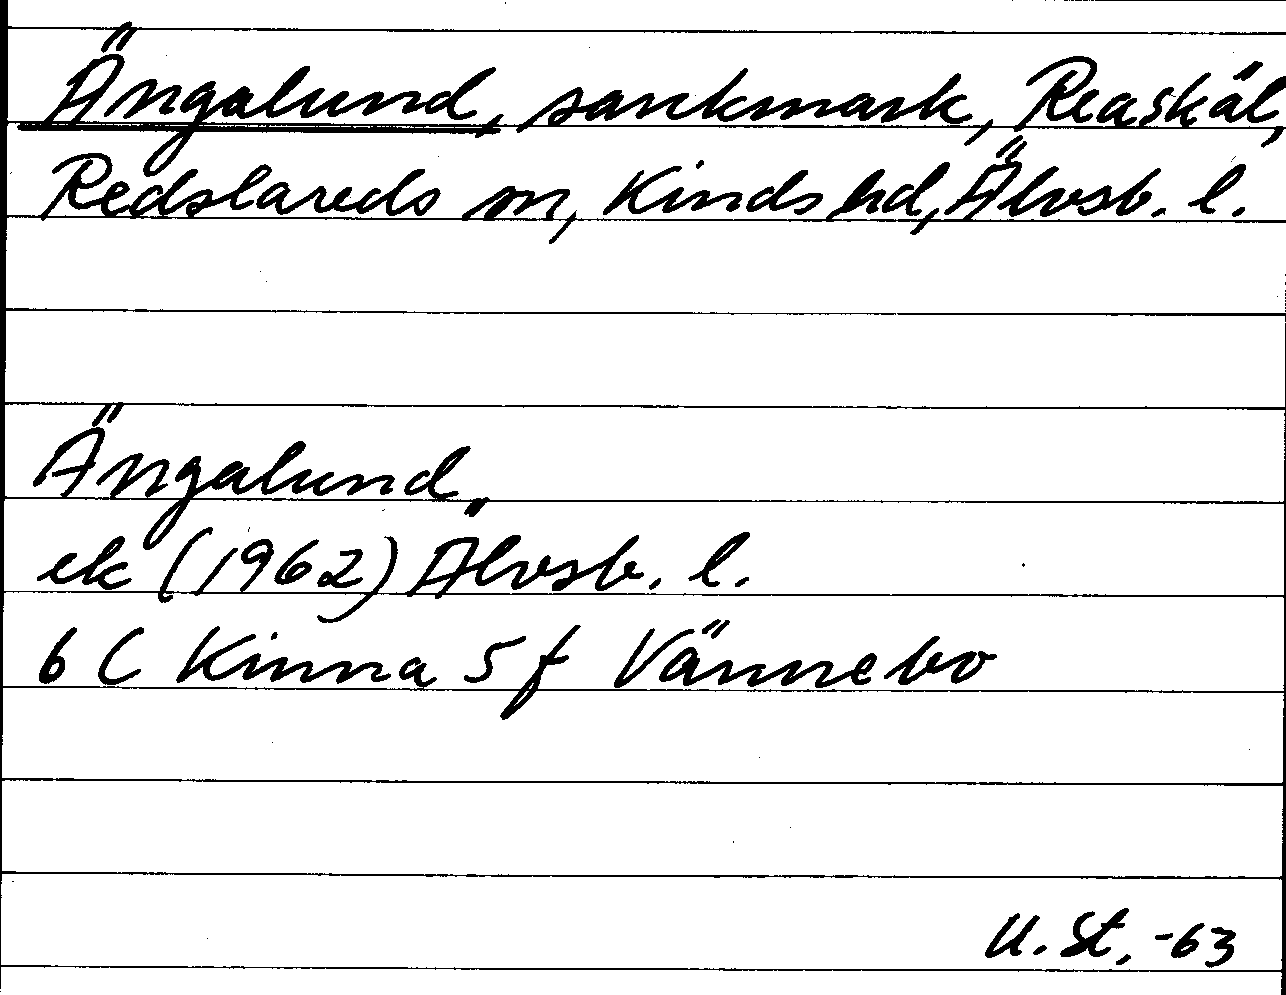 Ängalund, sankmark, Reaskäl,
Redslareds sn, Kinds hd, Älvsb. l.
Ängalund
ek (1962) Älvsb. l.
6 C Kinna 5 f Vännebo
U. St, -63